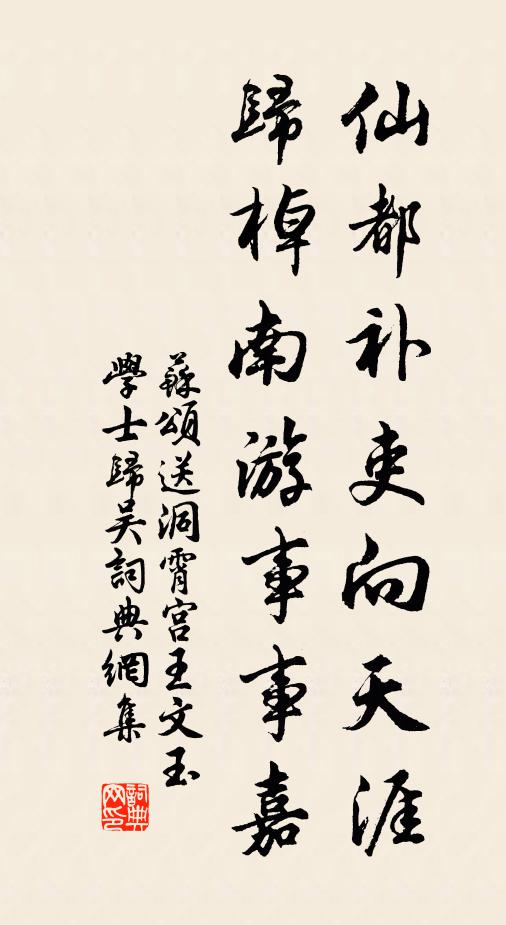 仙都补吏向天涯
歸棹南游事事嘉
蘇頌送洞霄宮王文玉
學士歸吴詞典網集
詞典网印